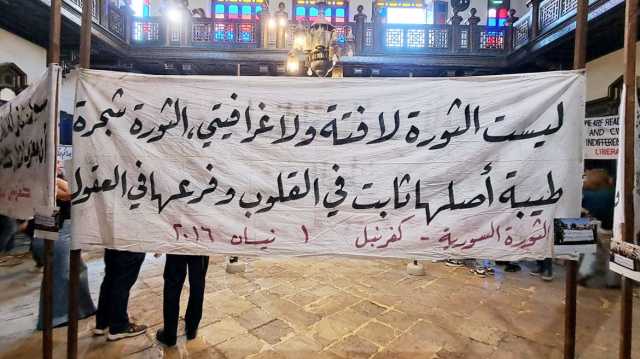 ليست الثورة لافتة ولا غرافيتي، الثورة شجرة
طيبة أصلها ثابت في القلوب وفرعها في العقول
الثورة السورية - كفرنبل ١ نيسان ٢٠١٦
WE ARE READ
AND CIV
INDIFFERE
LIBERA